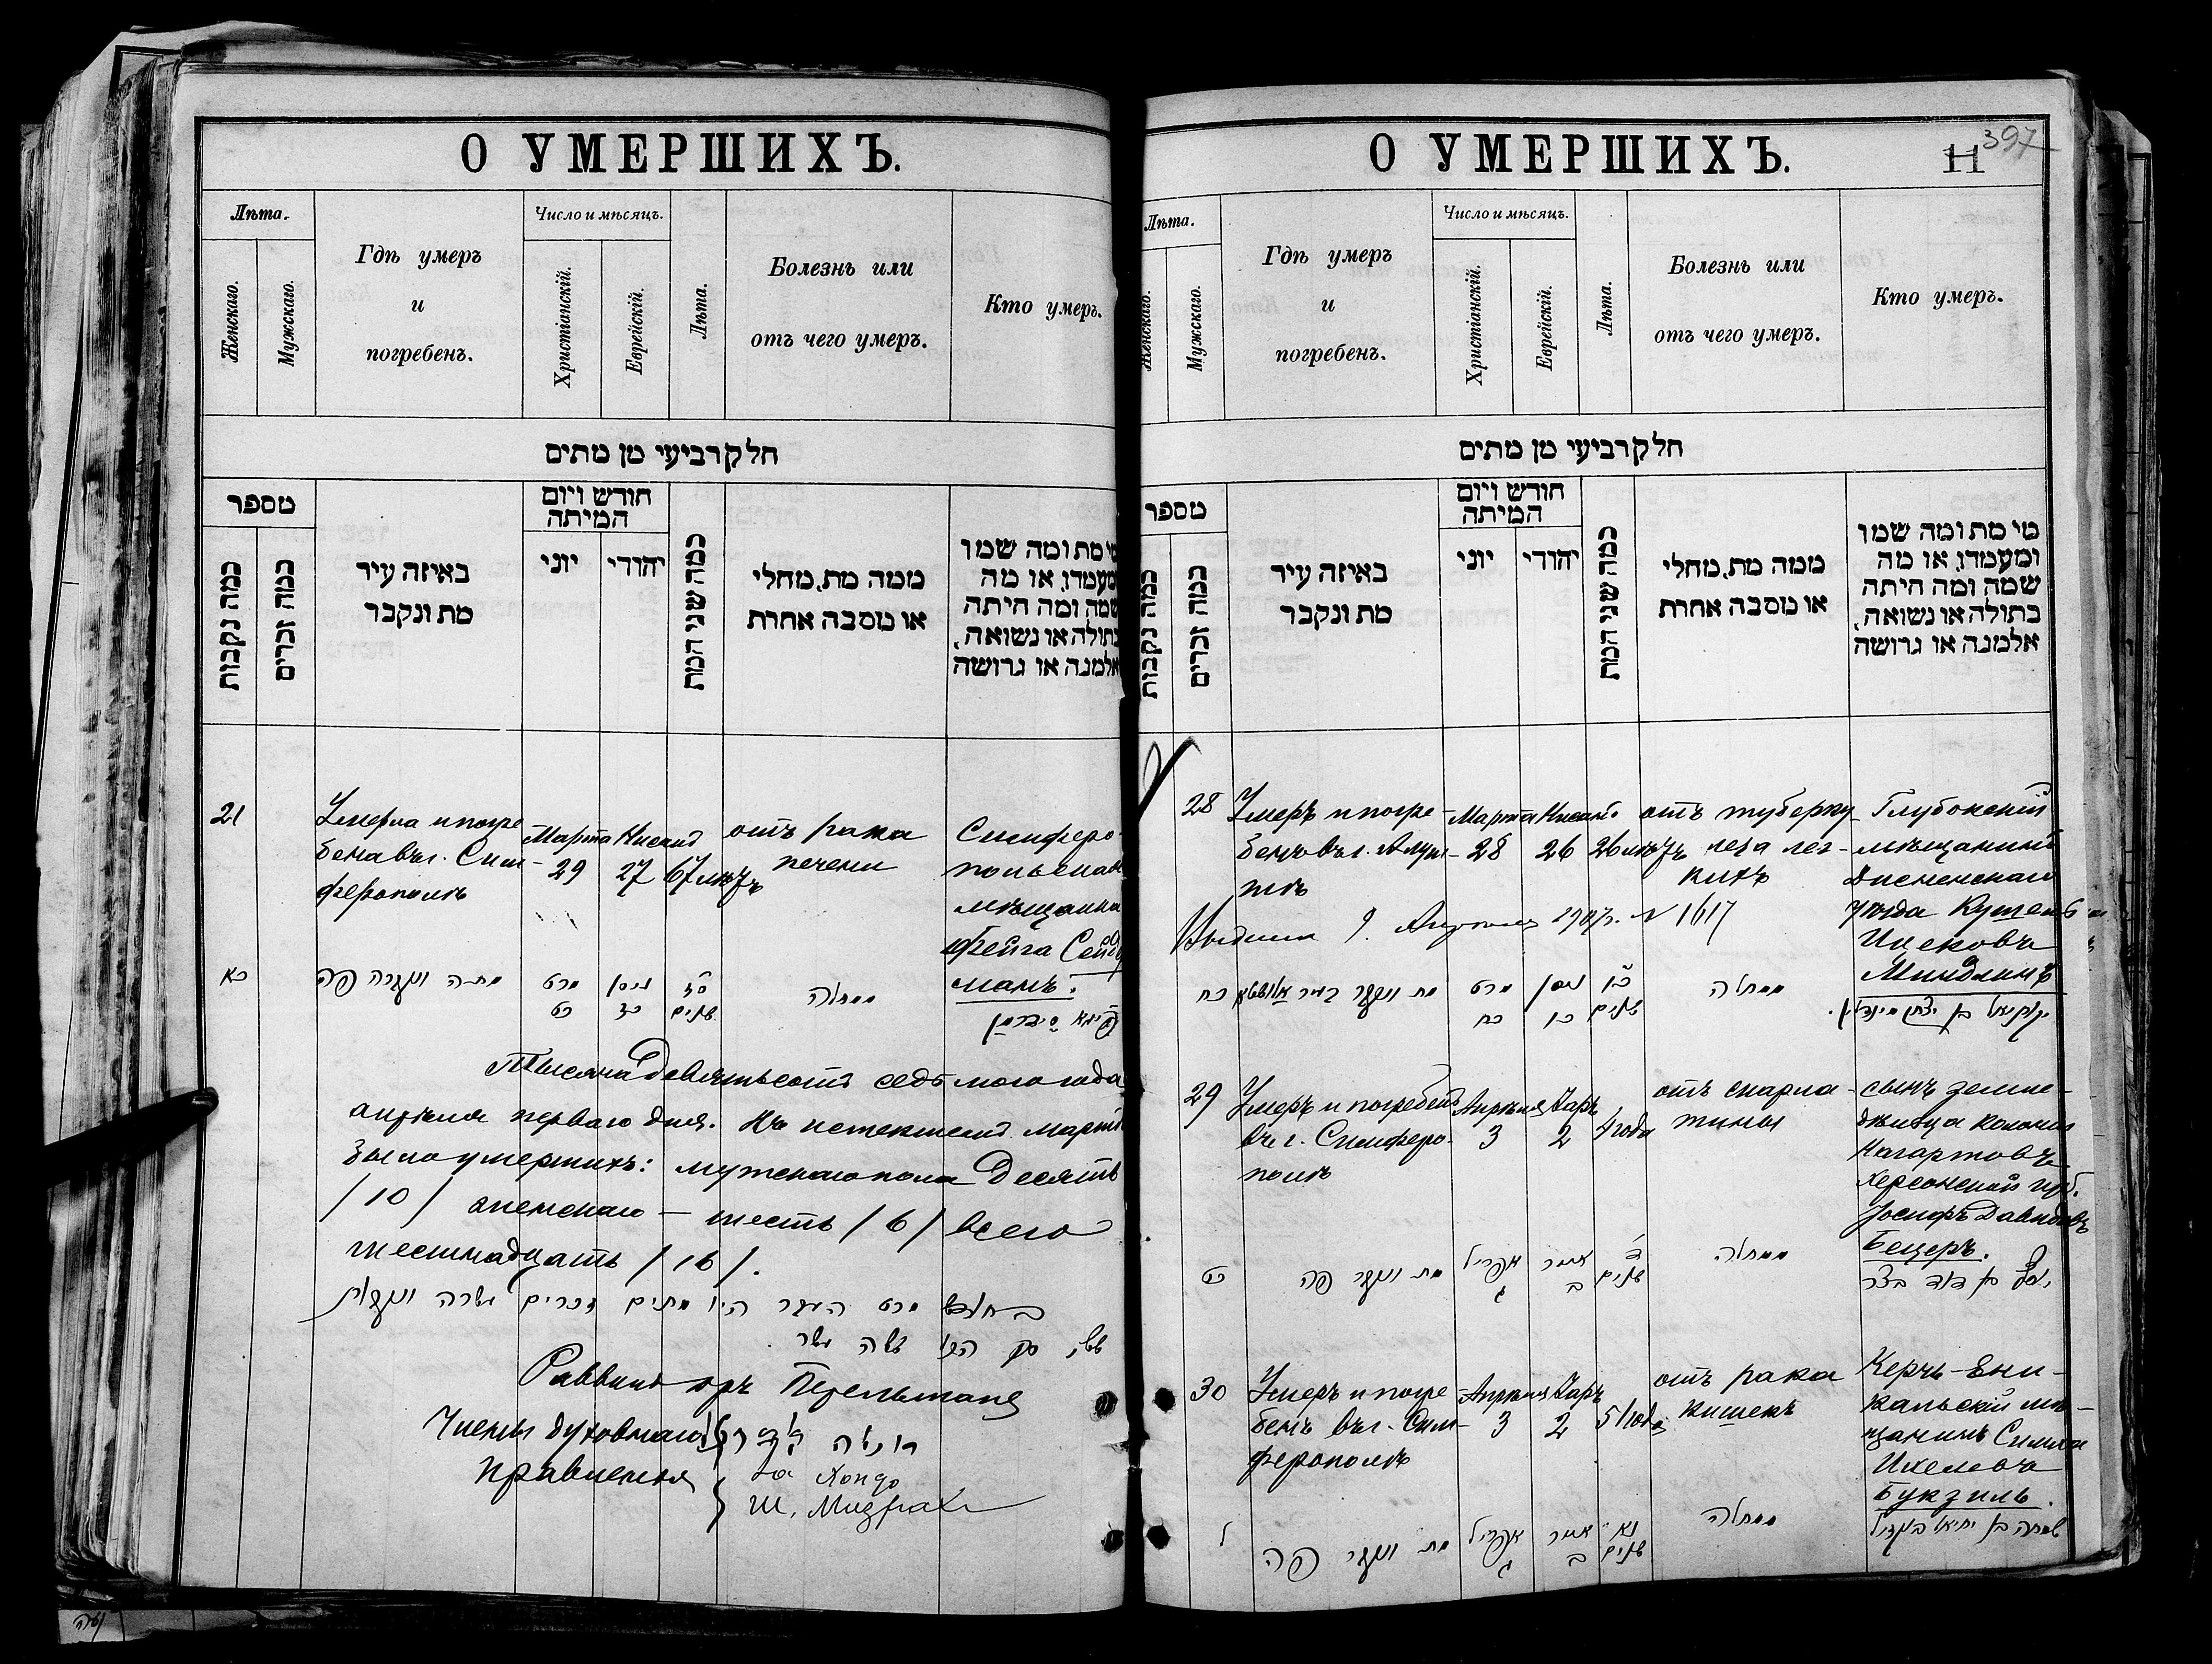 О УМЕРШИХЪ.
Лѣта.
Женскаго.
Мужскаго.
Гдѣ умеръ
и
погребенъ.
Число и мѣсяцъ.
Христіанскій.
Еврейскій.
Лѣта.
Болезнь или
отъ чего умеръ.
Кто умеръ.
חלק רביעי מן מתים
מספר
כמה נקבות
כמה זכרים
באיזה עיר
מת ונקבר
חודש ויום
המיתה
יוני
יהודי
כמה שני המת
ממה מת, מחלי
או מסבה אחרת
מי מת ומה שמו
ומעמדו, או מה
שמה ומה היתה
בתולה או נשואה,
אלמנה או גרושה
21
Умерла и погре
бена въ г. Сим-
ферополѣ
Марта
29
Нисанъ
27
67 лѣтъ
отъ рака
печени
Симферо-
польская
мѣщанка
Фейга
манъ.
כא
מתה ונקברה פה
מרט
כט
ניסן
כז
סז
שנים
ממחלה
פייגא
Тысяча девятьсотъ седьмого года
апрѣля перваго дня. Въ истекшемъ мартѣ
было умершихъ: мужского пола десять
/ 10 / женскаго — шесть / 6 / всего
шестнадцать / 16 /.
בחודש מרט העבר היו מתים זכרים עשרה ונקבות
שש, סך הכל ששה עשר.
Раввинъ Перельманъ
Члены духовнаго
правленія
за Хондо
Ш. Мизрахи
О УМЕРШИХЪ.
11
397
Лѣта.
Женскаго.
Мужскаго.
Гдѣ умеръ
и
погребенъ.
Число и мѣсяцъ.
Христіанскій.
Еврейскій.
Лѣта.
Болезнь или
отъ чего умеръ.
Кто умеръ.
חלק רביעי מן מתים
מספר
כמה נקבות
כמה זכרים
באיזה עיר
מת ונקבר
חודש ויום
המיתה
יוני
יהודי
כמה שני המת
ממה מת, מחלי
או מסבה אחרת
מי מת ומה שמו
ומעמדו, או מה
שמה ומה היתה
בתולה או נשואה,
אלמנה או גרושה
28
Умеръ и погре-
бенъ въ г. Алуш-
тѣ
Марта
28
Нисанъ
26
26 лѣтъ
отъ туберку-
леза лег-
кихъ
Глубокскій
мѣщанинъ
Дисненскаго
уѣзда
Ицековъ
Миндлинъ
1907 г. № 1617
כח
מת ונקבר בעיר אלושטא
מרט
כח
ניסן
כו
כו
שנים
ממחלה
בן יצחק מינדלין.
29
Умеръ и погребенъ
въ г. Симферо-
полѣ
Апрѣля
3
Іаръ
2
4 года
отъ скарла-
тины
сынъ земле-
дѣльца колоніи
Нагартовъ
Херсонской губ.
Іосифъ Давидовъ
Бецеръ.
כט
מת ונקבר פה
אפריל
ג
אייר
ב
ד
שנים
ממחלה
יוסף בן דוד בצר
30
Умеръ и погре-
бенъ въ г. Сим-
ферополѣ
Апрѣля
3
Іаръ
2
51 года
отъ рака
кишекъ
Керчь-Ени-
кальскій мѣ-
щанинъ Симха
Ихелевъ
Букзиль.
ל
מת ונקבר פה
אפריל
ג
אייר
ב
נא
שנים
ממחלה
שמחה בן יחיאל